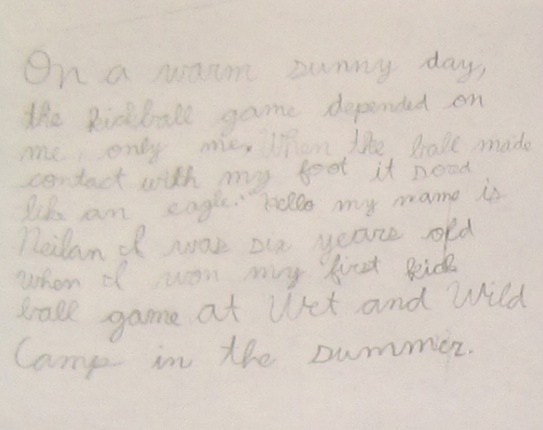 On a warm sunny day,
the kickball game depended on
me, only me. When the ball made
contact with my foot it sored
like an eagle. "Hello my name is
Neilan I was six years old
when I won my first kick
ball game at Wet and Wild
Camp in the summer.